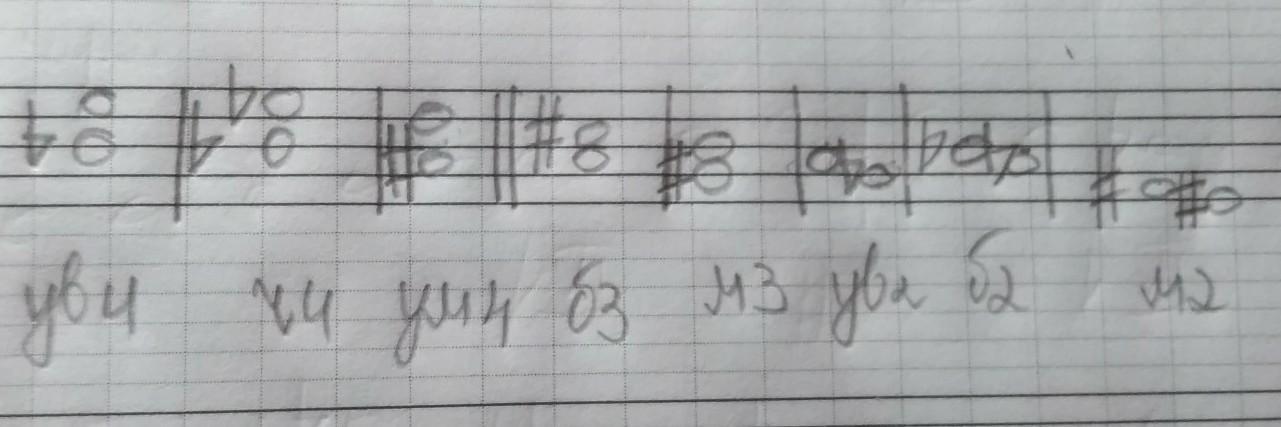 ув4 ч4 ум4 б3 м3 ув2 б2 м2